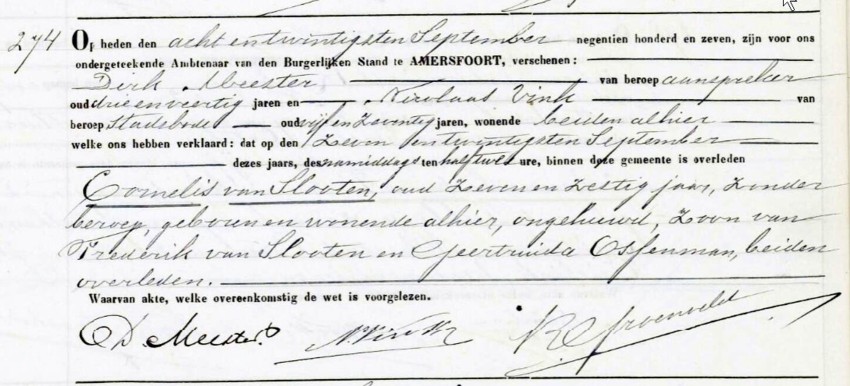 274
Op heden den acht en twintigsten September negentien honderd en zeven, zijn voor ons
ondergeteekende Ambtenaar van den Burgerlijken Stand te AMERSFOORT, verschenen:
Dirk Meester van beroep aanspreker
oud drie en veertig jaren en Nicolaas Vink van
beroep stadsbode oud vijf en zeventig jaren, wonende beiden alhier
welke ons hebben verklaard: dat op den zeven en twintigsten September
dezes jaars, des namiddags ten half twee ure, binnen deze gemeente is overleden
Cornelis van Slooten, oud zeven en zestig jaar, zonder
beroep, geboren en wonende alhier, ongehuwd, zoon van
Frederik van Slooten en Geertruida Ossenman, beiden
overleden.
Waarvan akte, welke overeenkomstig de wet is voorgelezen.
D. Meester. N. Vink